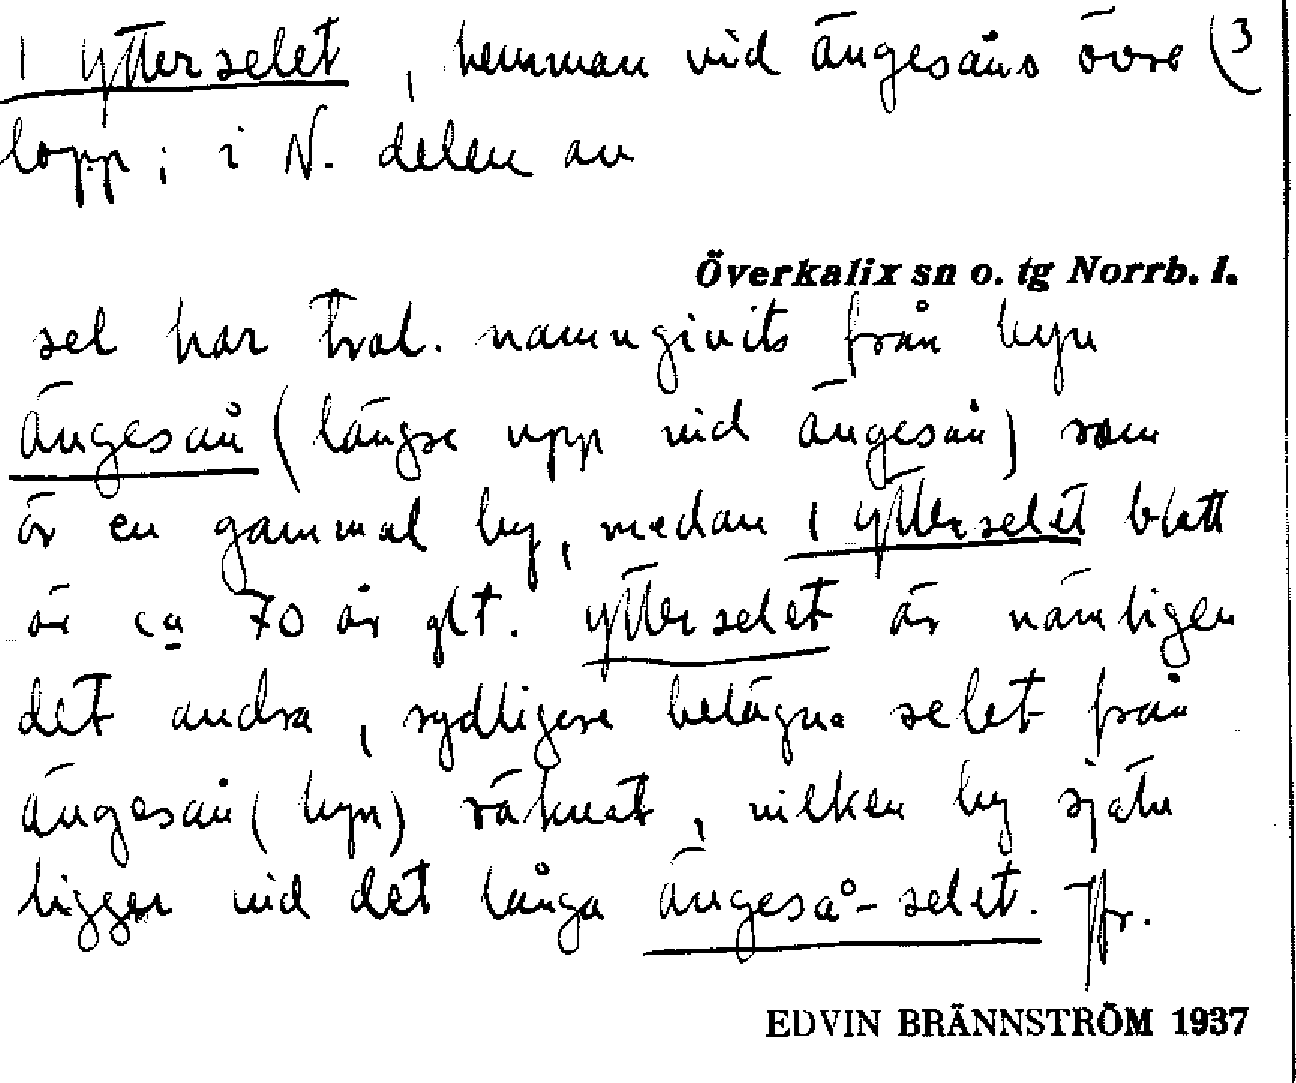 1 Ytterselet, hemman vid Ängesåns övre (3
lopp; i N. delen av
Överkalix sn o. tg Norrb. l.
sel har trol. namngivits från byn
Ängesån (längre upp vid Ängesån) som
är en gammal by, medan 1 Ytterselet blott
är ca 70 år glt. Ytterselet är nämligen
det andra, sydligare belägna selet från
Ängesån (byn) räknat, vilken by själv
ligger vid det långa Ängeså-selet. Jfr.
EDVIN BRÄNNSTRÖM 1937